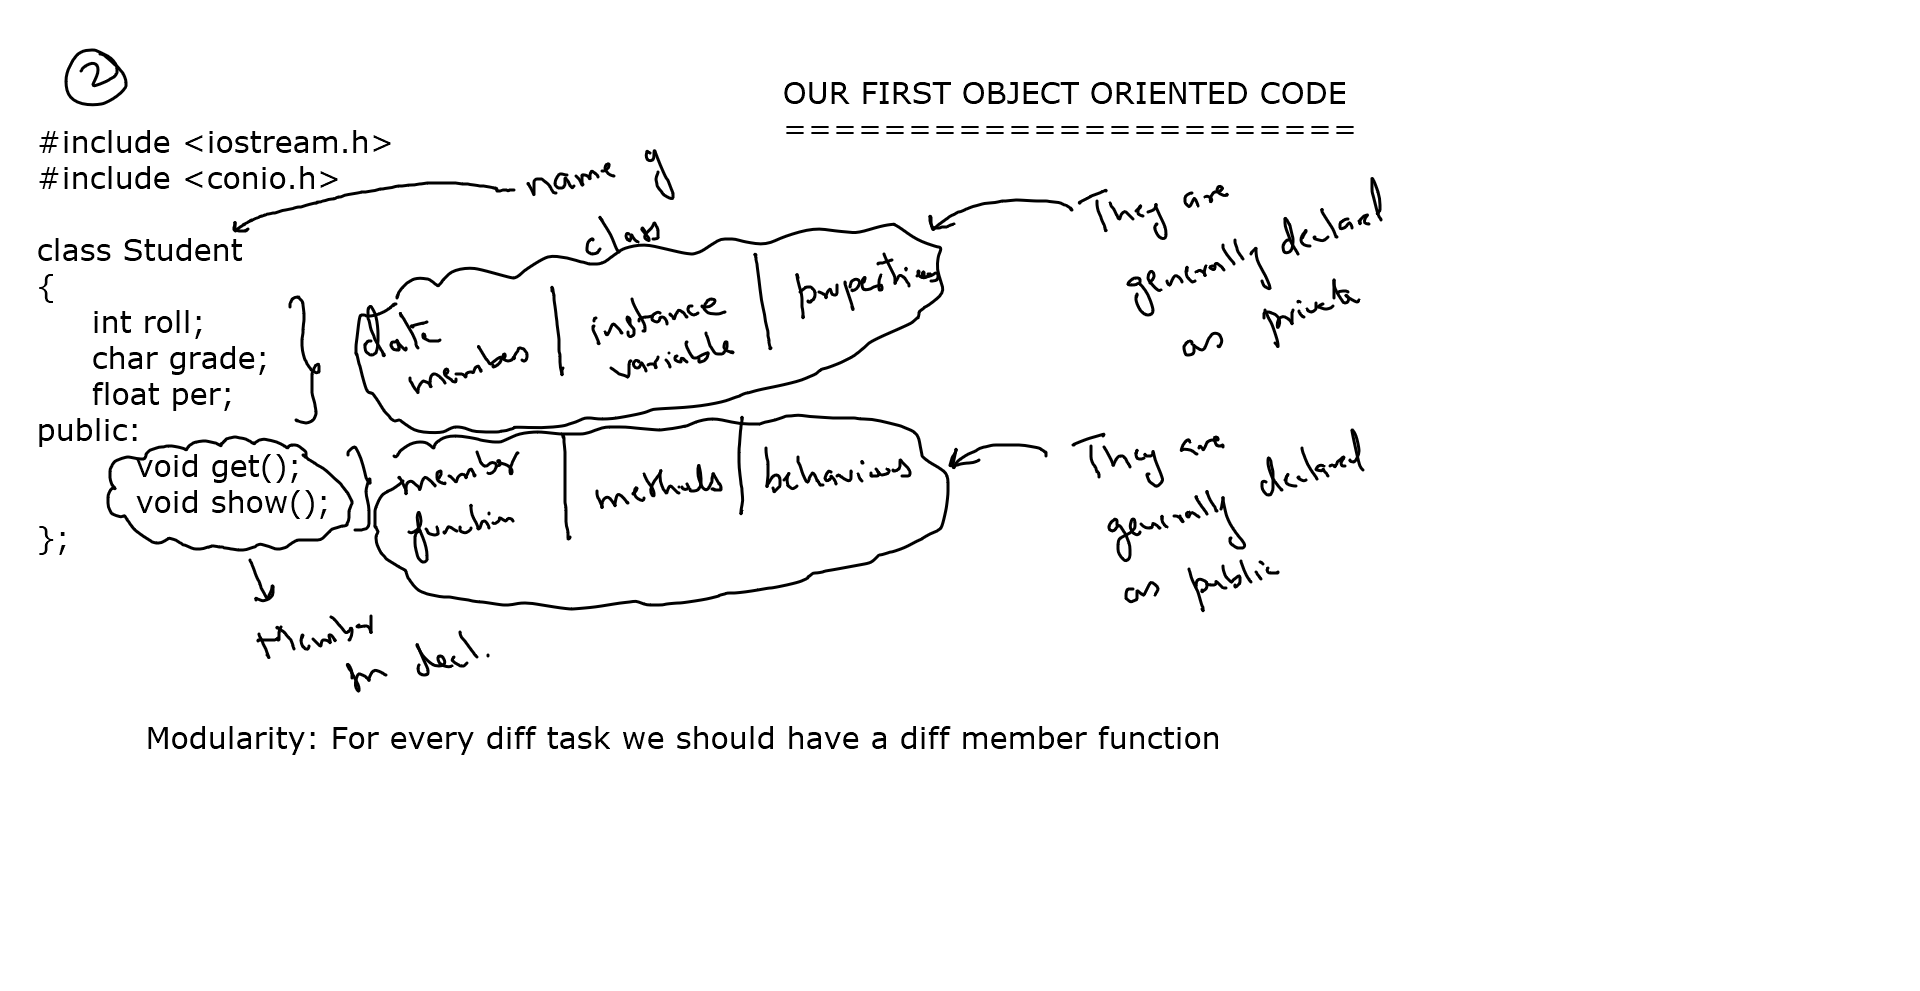 2
OUR FIRST OBJECT ORIENTED CODE
=======================
#include <iostream.h>
#include <conio.h>
name of
class
class Student
{
int roll;
char grade;
float per;
data
members
instance
variable
properties
They are
generally declared
as private
public:
void get();
void show();
};
member
function
methods
behaviours
They are
generally declared
as public
Member
fn decl.
Modularity: For every diff task we should have a diff member function